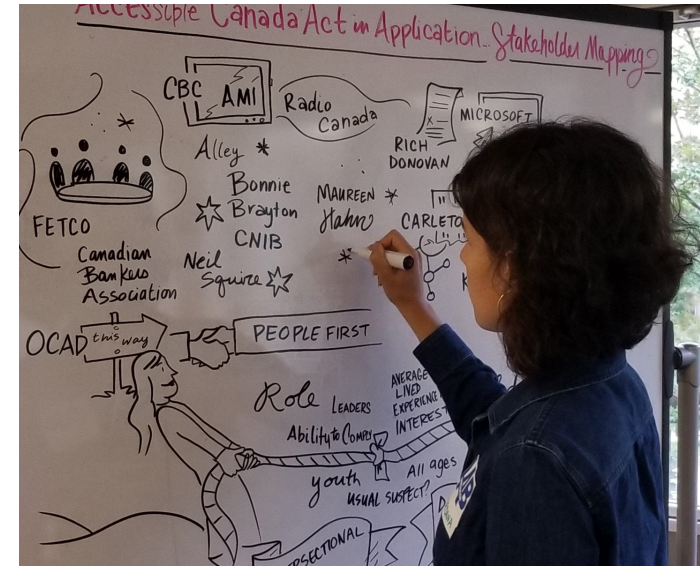 Accessible Canada Act in Application... Stakeholder Mapping
CBC
AMI
Radio
Canada
MICROSOFT
RICH
DONOVAN
Alley
Bonnie
Brayton
CNIB
MAUREEN
Hahn
CARLETO
FETCO
Canadian
Bankers
Association
Neil
Squire
OCAD
this way
PEOPLE FIRST
Role
LEADERS
AVERAGE
LIVED
EXPERIENCE
INTEREST
Ability to Comply
youth
All ages
USUAL SUSPECT?
ERSECTIONAL